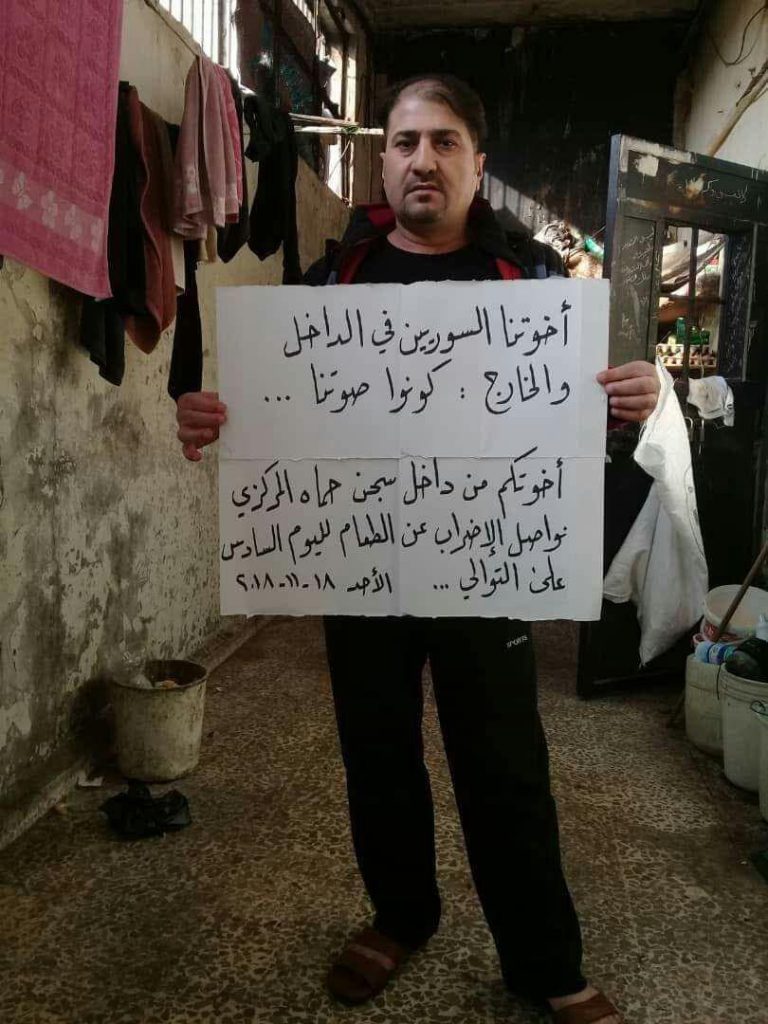 أخوتنا السوريين في الداخل
والخارج : كونوا صوتنا ...
أخوتكم من داخل سجن حماه المركزي
نواصل الإضراب عن الطعام لليوم السادس
على التوالي ... الأحد ١٨-١١-٢٠١٨
SPORTS